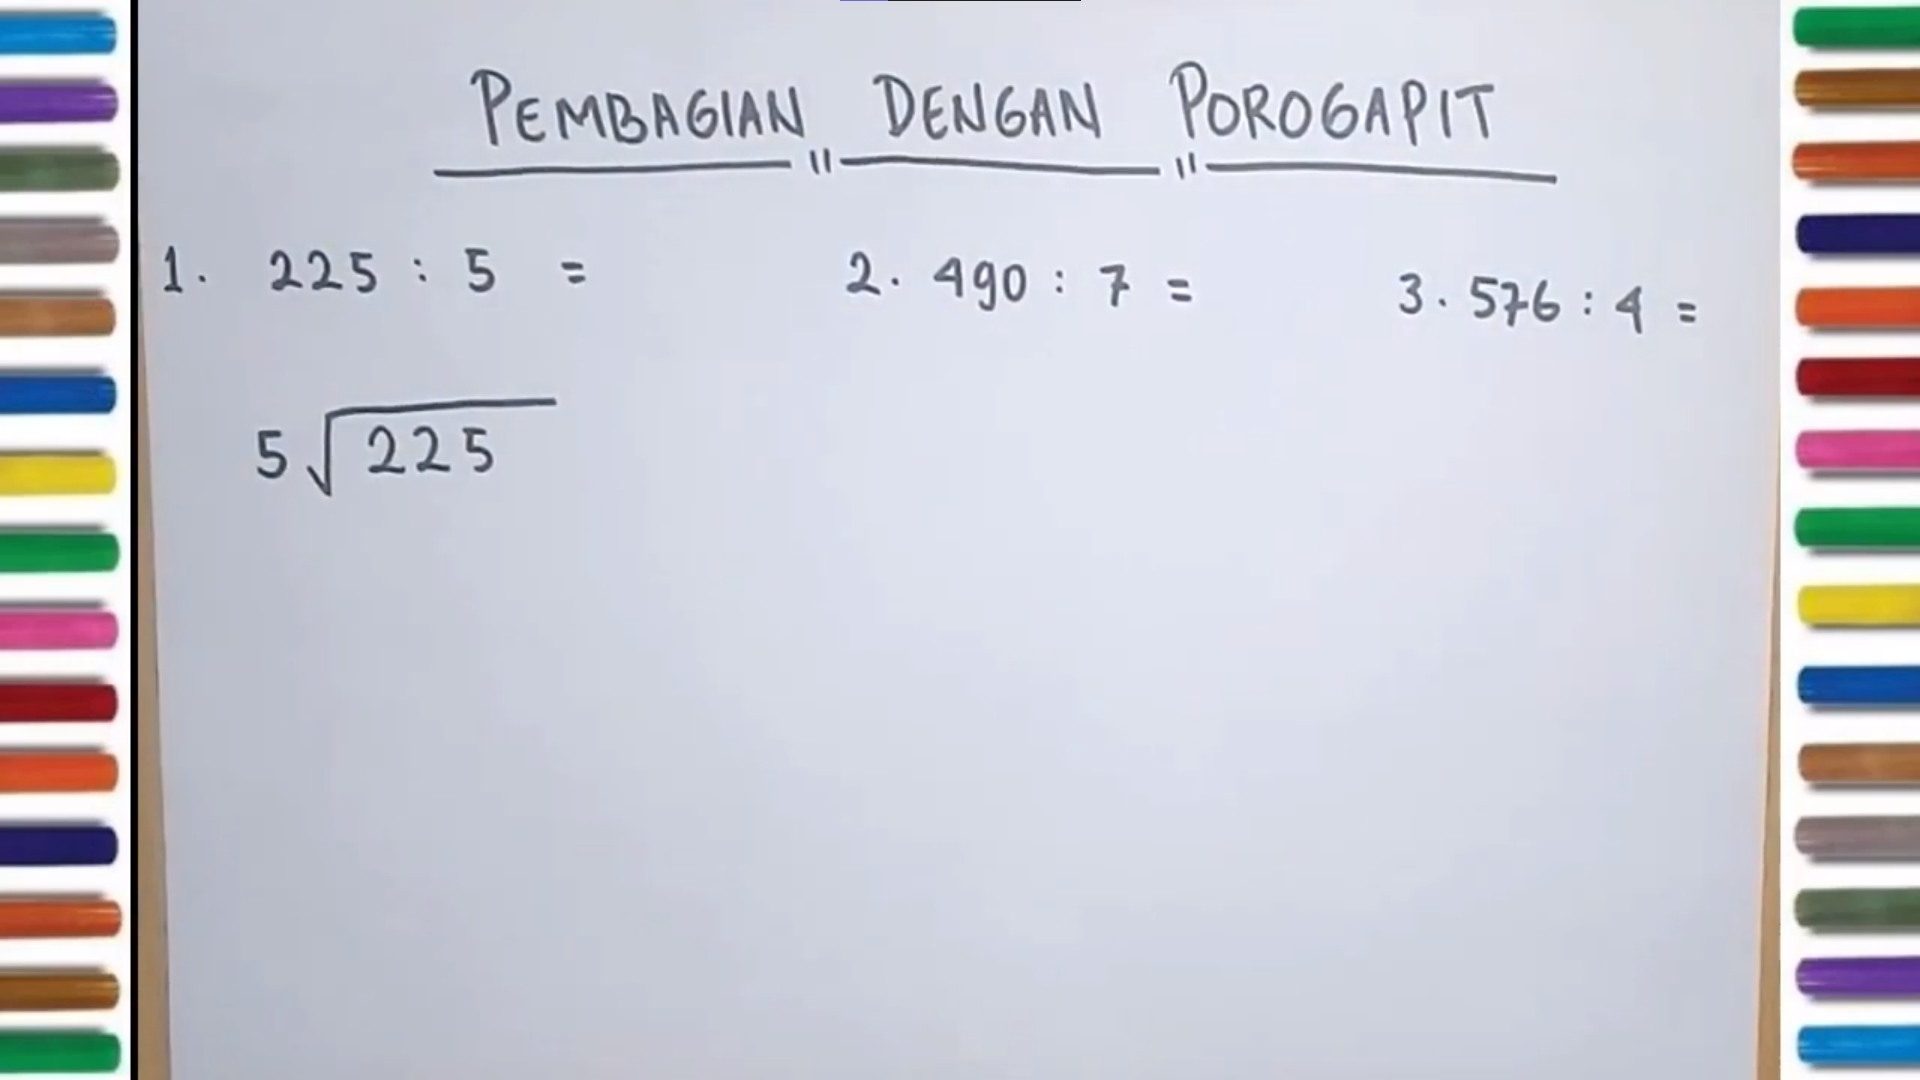 PEMBAGIAN DENGAN POROGAPIT
1. 225 : 5 =
2. 490 : 7 =
3. 576 : 4 =
5√225